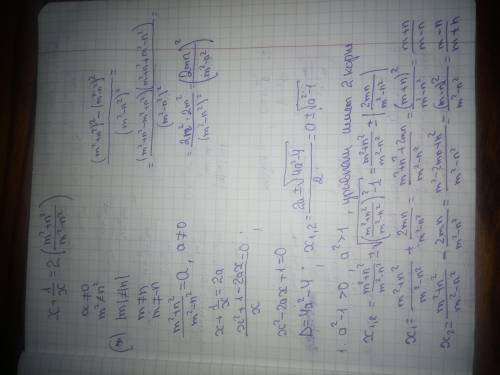 x + 1/x = 2 · ((m²+n²)/(m²-n²))
x ≠ 0
m² ≠ n²
|m| ≠ |n|
m ≠ n
m ≠ -n
(m²+n²)/(m²-n²) = a, a ≠ 0
x + 1/x = 2a
(x²+1-2ax)/x = 0;
x² - 2ax + 1 = 0
D = 4a² - 4; x₁,₂ = (2a ± √(4a²-4))/2 = a ± √(a²-1)
1. a² - 1 > 0, a² > 1, уравнение имеет 2 корня
x₁,₂ = (m²+n²)/(m²-n²) ± √(((m²+n²)/(m²-n²))² - 1) = (m²+n²)/(m²-n²) ± |2mn/(m²-n²)|
x₁ = (m²+n²)/(m²-n²) + 2mn/(m²-n²) = (m²+n²+2mn)/(m²-n²) = (m+n)²/(m²-n²) = (m+n)/(m-n)
x₂ = (m²+n²)/(m²-n²) - 2mn/(m²-n²) = (m²-2mn+n²)/(m²-n²) = (m-n)²/(m²-n²) = (m-n)/(m+n)
((m²+n²)² - (m²-n²)²)/(m²-n²)² =
= ((m²+n²-m²+n²)(m²+n²+m²-n²))/(m²-n²)² =
= (2m²·2n²)/(m²-n²)² = (2mn/(m²-n²))²